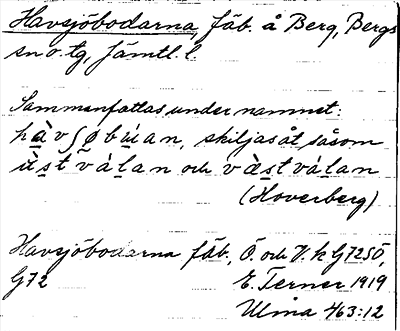 Havsjöbodarna, fäb. å Berg, Bergs
sn o. tg, Jämtl. l.
Sammanfattas under namnet:
hàvʃøbúan, skiljas åt såsom
ùstválan och vàstválan
(Hoverberg)
Havsjöbodarna fäb., Ö. och V. k G72SÖ,
G72 E. Terner 1919
Ulma 463:12